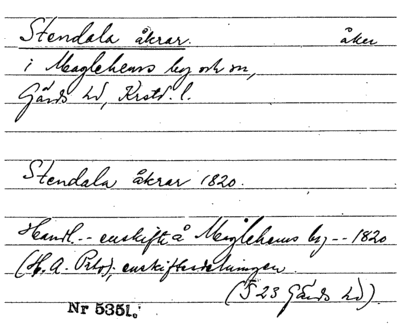 Stendala åkrar. åker
i Maglehems by och sn,
Gärds hd, Krstd. l.
Stendala åkrar 1820.
Handl. -- enskifte å Måglehems by -- 1820
(H. A. Prtr), enskiftesdelningen
(F 23 Gärds hd).
Nr 5351.